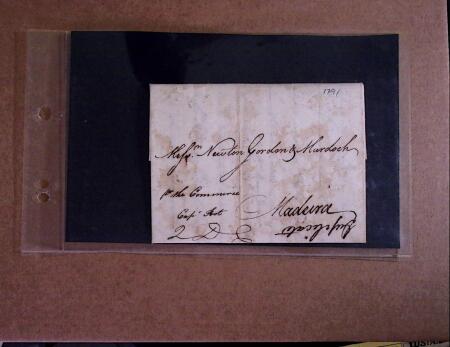 1791
Messrs Newton Gordon & Murdoch
pr the Commerce
Capt
Madeira
2 D
Duplicate